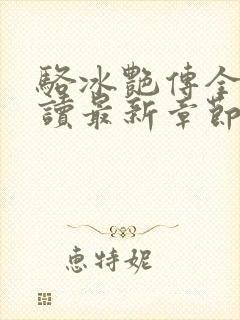 駱冰艷傳全
讀最新章節
惠特妮